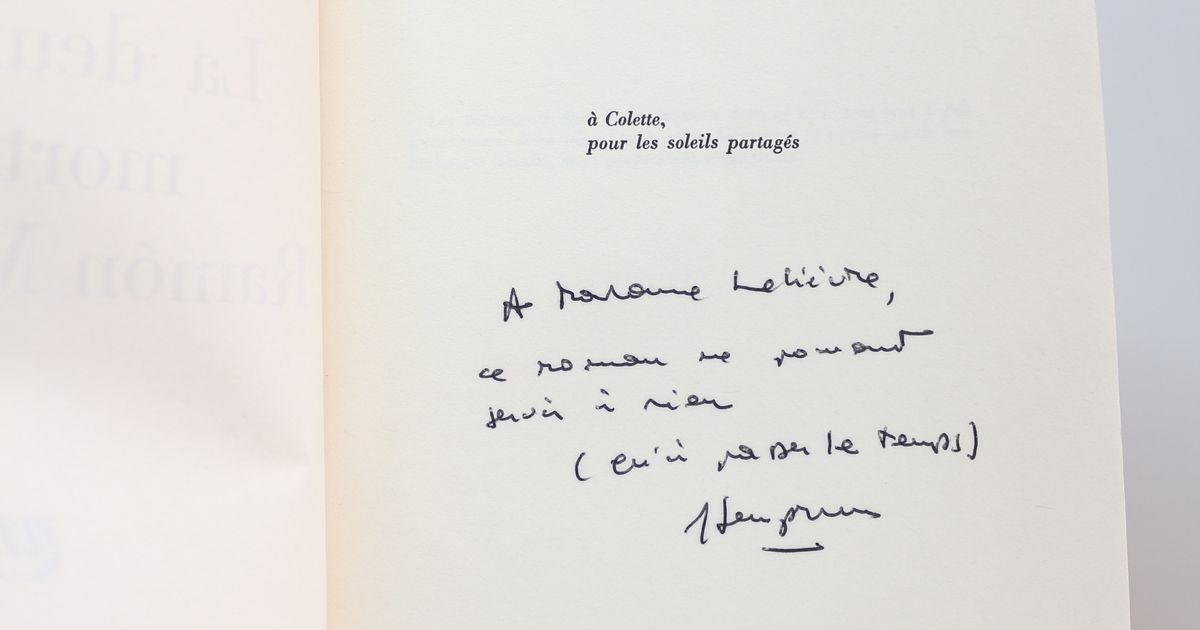 La deu
mort
Ramón M
nrf
à Colette,
pour les soleils partagés
A Madame Lelièvre,
ce roman ne pouvant
servir à rien
(qu'à passer le temps)
JSemprun